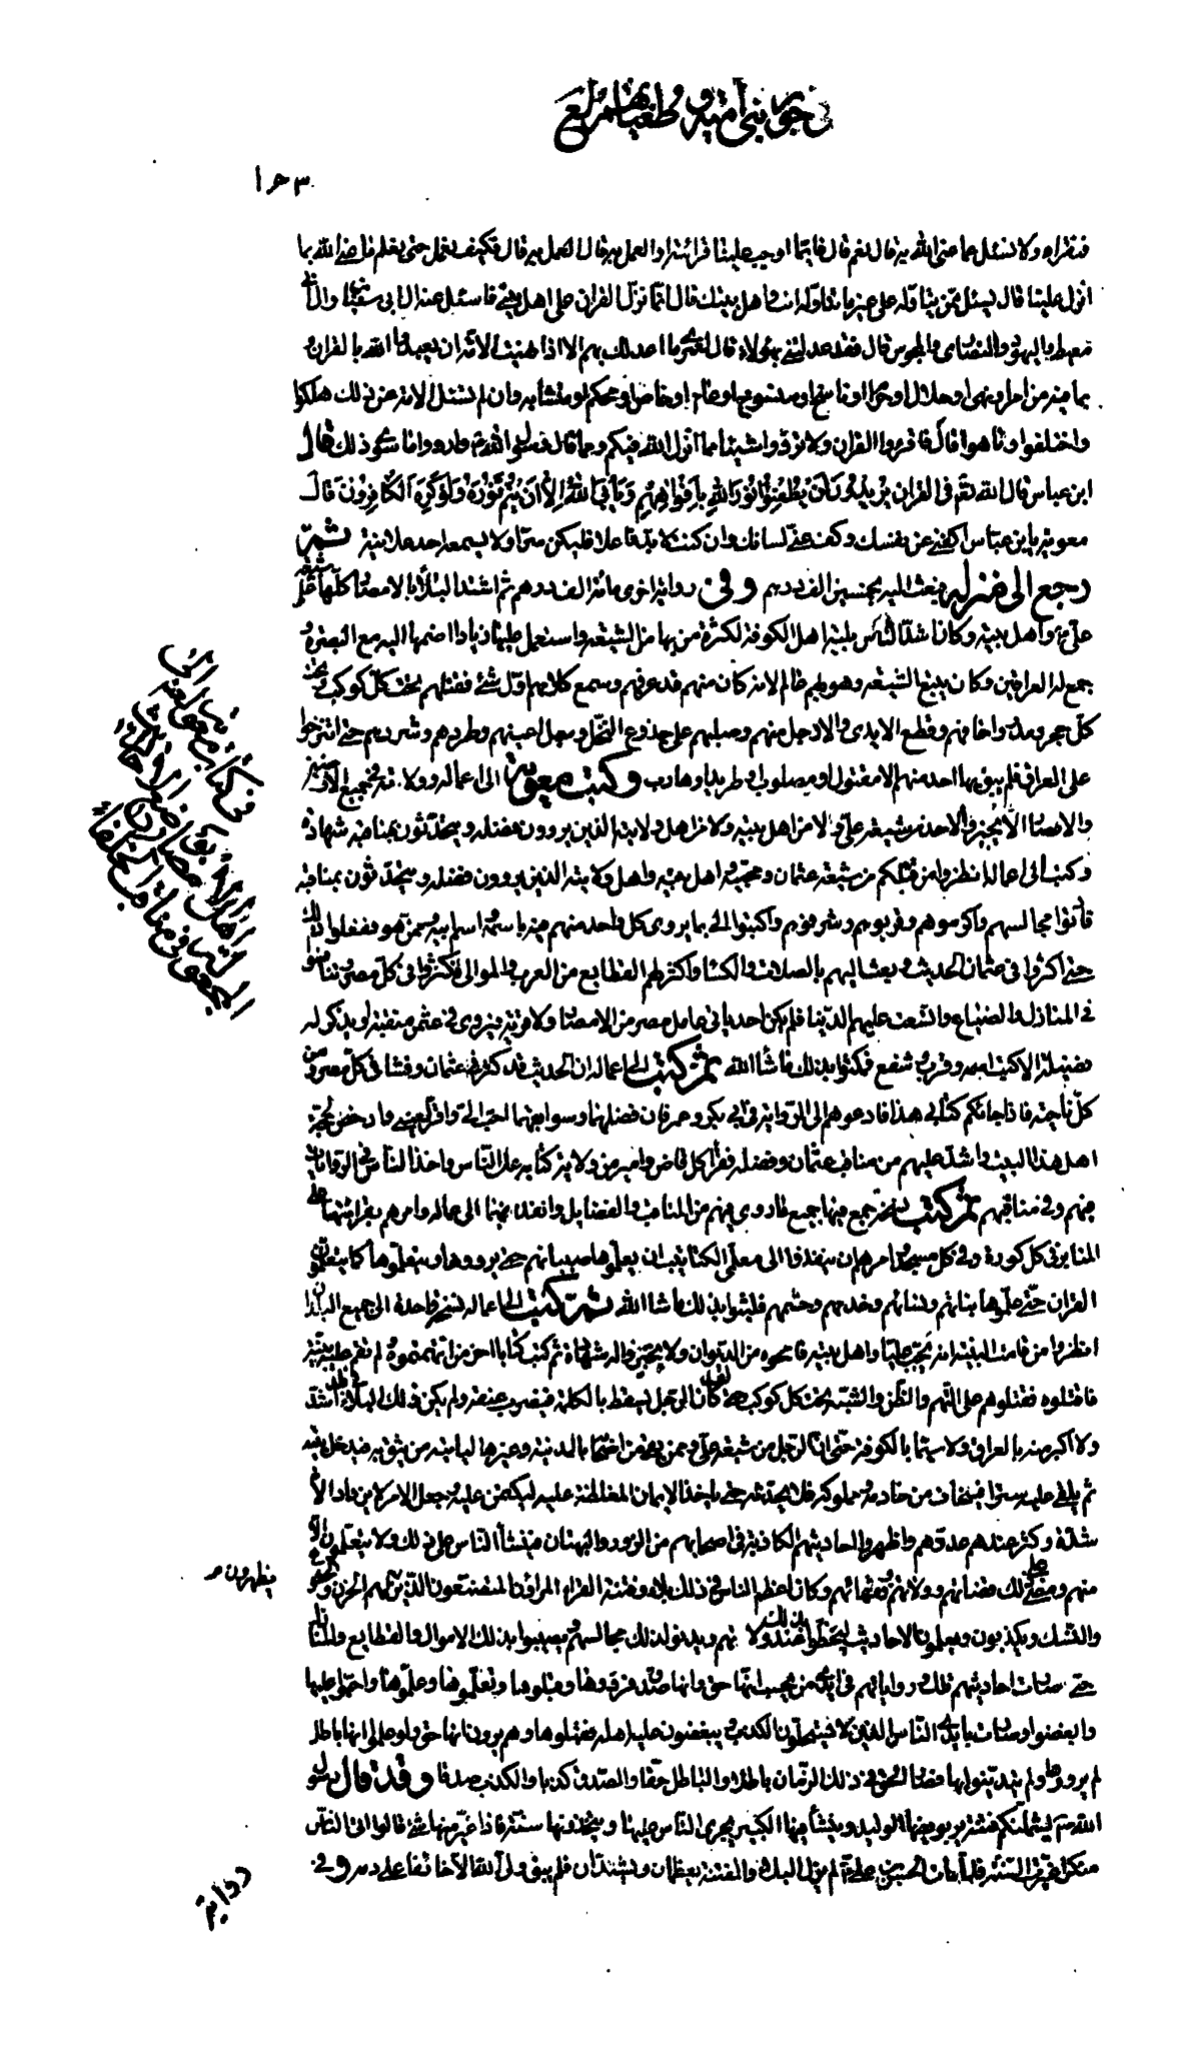 في جور بني امية و طغيانهم
١٦٣
فنقرأه ولا نسئل عما عنى الله به قال نعم قال فايما اوجب علينا قرائته او العمل به قال العمل به قال فكيف نعمل حتى نعلم ما عنى الله بما
انزل علينا قال يسئل ممن يتأوله على غير ما تتأوله انت واهل بيتك قال انما نزل القران على اهل بيتي فاسئل عنه ال ابي سفيان وال ابي
معيط واليهود والنصارى والمجوس قال فقد عدلتني بهؤلاء قال لعمري ما اعدلك بهم الا اذا نهيت الامة ان يعبدوا الله بالقران و
بما فيه من امر او نهى او حلال او حرام او ناسخ او منسوخ او عام او خاص او محكم او متشابه وان لم تسئل الامة عن ذلك هلكوا
واختلفوا وتاهوا قال فاقرؤا القران ولا ترووا شيئا مما انزل الله فيكم وما قال رسول الله وارووا ما سوى ذلك قال
ابن عباس قال الله تعالى في القران يريدون ان يطفئوا نور الله بافواههم ويأبى الله الا ان يتم نوره ولو كره الكافرون قال
معوية يا بن عباس اكفني عن نفسك وكف عني لسانك وان كنت لا بد فاعلا فليكن سرا ولا يسمعه احد علانية ثم
رجع الى منزله فبعث اليه بخمسين الف درهم وفي رواية اخرى مائة الف درهم ثم اشتد البلاء بالامصار كلها على شيعة
علي واهل بيته وكان اشد الناس بلية اهل الكوفة لكثرة من بها من الشيعة واستعمل عليها زيادا ضمها اليه مع البصرة و
جمع له العراقين وكان يتبع الشيعة وهو بهم عالم لانه كان منهم قد عرفهم وسمع كلامهم اول شئ فقتلهم تحت كل كوكب وتحت
كل حجر ومدر واخافهم وقطع الايدي والارجل منهم وصلبهم على جذوع النخل وسمل اعينهم وطردهم وشردهم حتى انتزحوا
على العراق فلم يبق بها احد منهم الا مقتول او مصلوب او طريد او هارب وكتب معوية الى عماله وولاته في جميع الارضين
والامصار الا يجيزوا لاحد من شيعة علي ولا من اهل بيته ولا من اهل ولايته الذين يروون فضله ويتحدثون بمناقبه شهادة
وكتب الى عماله انظروا من قبلكم من شيعة عثمان ومحبيه واهل بيته واهل ولايته الذين يروون فضله ويتحدثون بمناقبه
فادنوا مجالسهم واكرموهم وقربوهم وشرفوهم واكتبوا الي بما يروى كل واحد منهم فيه باسمه واسم ابيه وممن هو ففعلوا ذلك
حتى اكثروا في عثمان الحديث وبعث اليهم بالصلات والكسا واكثر لهم القطايع من العرب والموالي فكثروا في كل مصر وتنافسوا
في المنازل والضياع واتسعت عليهم الدنيا فلم يكن احد يأتي عامل مصر من الامصار ولا قرية فيروي في عثمن منقبة او يذكر له
فضيلة الا كتب اسمه وقرب وشفع فمكثوا بذلك ما شاء الله ثم كتب الى عماله ان الحديث قد كثر في عثمان وفشا في كل مصر ومن
كل ناحية فاذا جائكم كتابي هذا فادعوهم الى الرواية في ابي بكر وعمر فان فضلهما وسوابقهما احب الي واقر لعيني وادحض لحجة
اهل هذا البيت واشد عليهم من مناقب عثمان وفضله فقرأ كل قاض وامير من ولايته كتابه على الناس واخذ الناس في الروايات
فيهم وفي مناقبهم ثم كتب نسخة جمع فيها جميع ما روي فيهم من المناقب والفضايل وانفذها الى عماله وامرهم بقرائتها على
المنابر في كل كورة وفي كل مسجد وامرهم ان ينفذوا الى معلمي الكتاتيب ان يعلموها صبيانهم حتى يرووها ويتعلموها كما يتعلمون
القران حتى علموها بناتهم ونسائهم وخدمهم وحشمهم فلبثوا بذلك ما شاء الله ثم كتب الى عماله نسخة واحدة الى جميع البلدان
انظروا من قامت البينة انه يحب عليا واهل بيته فامحوه من الديوان ولا تجيزوا له شهادة ثم كتب كتابا اخر من اتهمتموه ولم تقم عليه بينة
فاقتلوه فقتلوهم على التهم والظن والشبه تحت كل كوكب حتى لقد كان الرجل يسقط بالكلمة فيضرب عنقه ولم يكن ذلك البلاء اشد
ولا اكبر منه بالعراق ولا سيما بالكوفة حتى ان الرجل من شيعة علي وممن بقي من اصحابه بالمدينة وغيرها ليأتيه من يثق به فيدخل بيته
ثم يلقي عليه سترا فيخاف من خادمه ومملوكه فلا يحدثه حتى ياخذ الايمان المغلظة عليه ليكتمن عليه وجعل الامر لا يزداد الا
شدة وكثر عندهم عدوهم واظهروا احاديثهم الكاذبة في اصحابهم من الزور والبهتان فينشأ الناس على ذلك ولا يتعلمون الا
منهم ومضى على ذلك قضاتهم وولاتهم وفقهائهم وكان اعظم الناس في ذلك بلاء وفتنة القراء المراؤن المتصنعون الذين يظهرون لهم الحزن والخشوع
والنسك ويكذبون ويعلمون الاحاديث ليحظوا بذلك عند ولاتهم ويدنوا بذلك مجالسهم ويصيبوا بذلك الاموال والقطايع والمنازل
حتى صارت احاديثهم تلك ورواياتهم في ايدي من يحسب انها حق وانها صدق فرووها وقبلوها وتعلموها وعلموها واحبوا عليها
وابغضوا وصارت بايدي الناس الذين لا يستحلون الكذب ويبغضون عليه اهله فقبلوها وهم يرون انها حق ولو علموا انها باطل
لم يرووها ولم يتدينوا بها فصار الحق في ذلك الزمان باطلا والباطل حقا والصدق كذبا والكذب صدقا وقد قال رسول
الله ص ليشملنكم فتنة يربو فيها الوليد وينشأ فيها الكبير يجري الناس عليها ويتخذونها سنة فاذا غير منها شئ قالوا اتى الناس
منكرا غيرت السنة فلما مات الحسن بن علي لم يزل البلاء والفتنة يعظمان ويشتدان فلم يبق ولي لله الا خائفا على دمه وفي
رواية
يظهرون